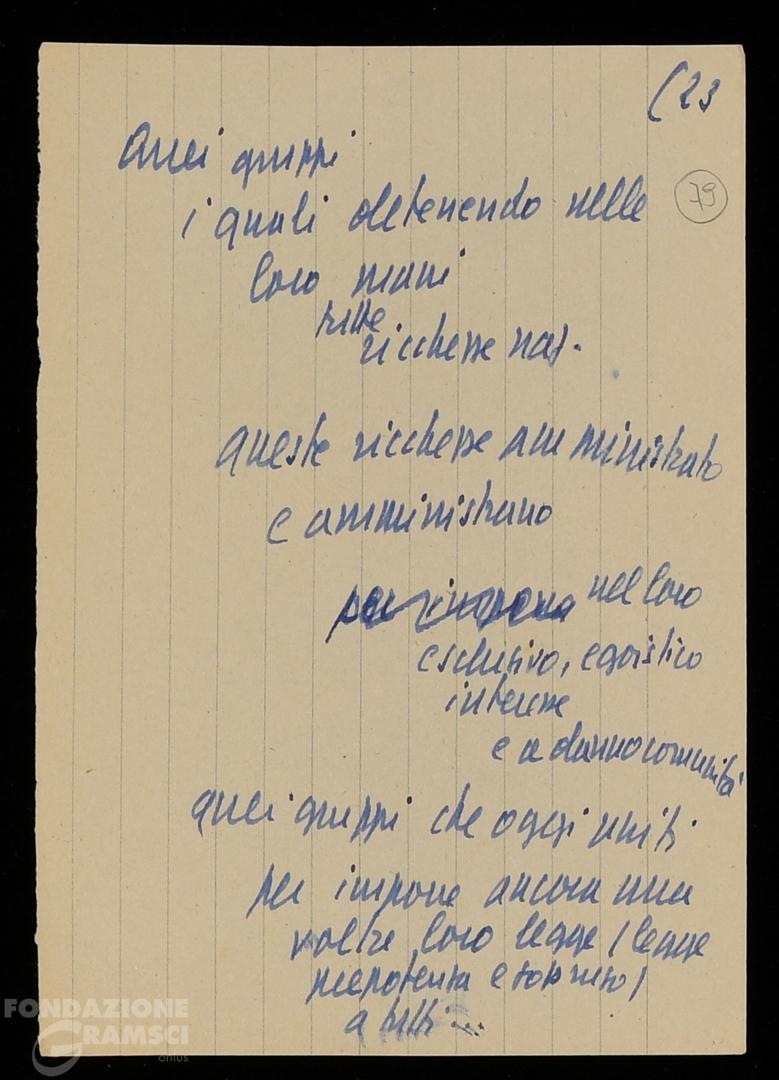 (23
79
quei gruppi
i quali detenendo nelle
loro mani
tutte
ricchezze naz.
queste ricchezze amministrato
e amministrano
nel loro
esclusivo, egoistico
interesse
e a danno comunità
quei gruppi che oggi uniti
per imporre ancora una
volta loro legge (legge
prepotenza e sopruso)
a tutti ...
FONDAZIONE
GRAMSCI
onlus